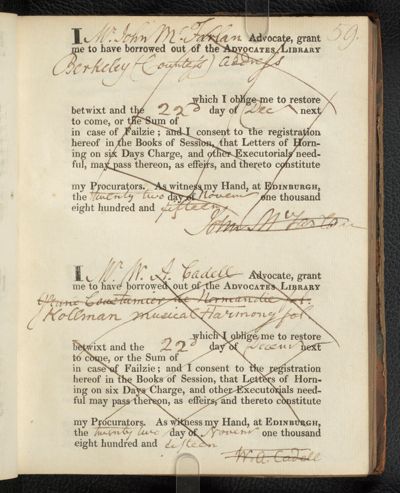 59.
I Mr. John McFarlan Advocate, grant
me to have borrowed out of the ADVOCATES LIBRARY
Berkeley (Countess) address
which I oblige me to restore
betwixt and the 22d day of Dec next
to come, or the Sum of
in case of Failzie; and I consent to the registration
hereof in the Books of Session, that Letters of Horn-
ing on six Days Charge, and other Executorials need-
ful, may pass thereon, as effeirs, and thereto constitute
my Procurators. As witness my Hand, at EDINBURGH,
the twenty two day of Novem one thousand
eight hundred and fifteen
John McFarlan
I Mr. W. A. Cadell Advocate, grant
me to have borrowed out of the ADVOCATES LIBRARY
Coustumier de Normandie
Kollman musical Harmony fol
which I oblige me to restore
betwixt and the 22d day of Decem next
to come, or the Sum of
in case of Failzie; and I consent to the registration
hereof in the Books of Session, that Letters of Horn-
ing on six Days Charge, and other Executorials need-
ful may pass thereon, as effeirs, and thereto constitute
my Procurators. As witness my Hand, at EDINBURGH,
the twenty two day of Novem one thousand
eight hundred and fifteen
W. A. Cadell